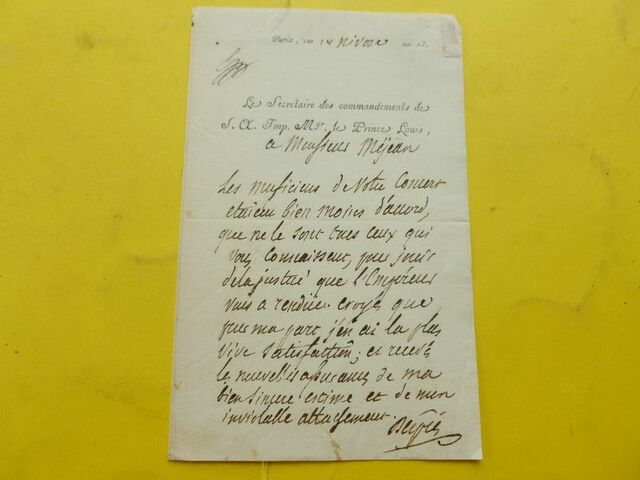 Paris, ce 14 Nivose an 13.
Le Secrétaire des commandements de
S. A. Imp. Mgr. le Prince Louis,
a Monsieur Méjean
Les musiciens de Notre Concert
etaient bien moins d'accord,
que ne le sont tous ceux qui
Vous Connaissent, pour jouir
de la justice que l'Empereur
Vous a rendue. croyés que
pour ma part j'en ai la plus
Vive Satisfaction; et recevés
les nouvelles assurances de ma
bien sincere estime et de mon
inviolable attachement.